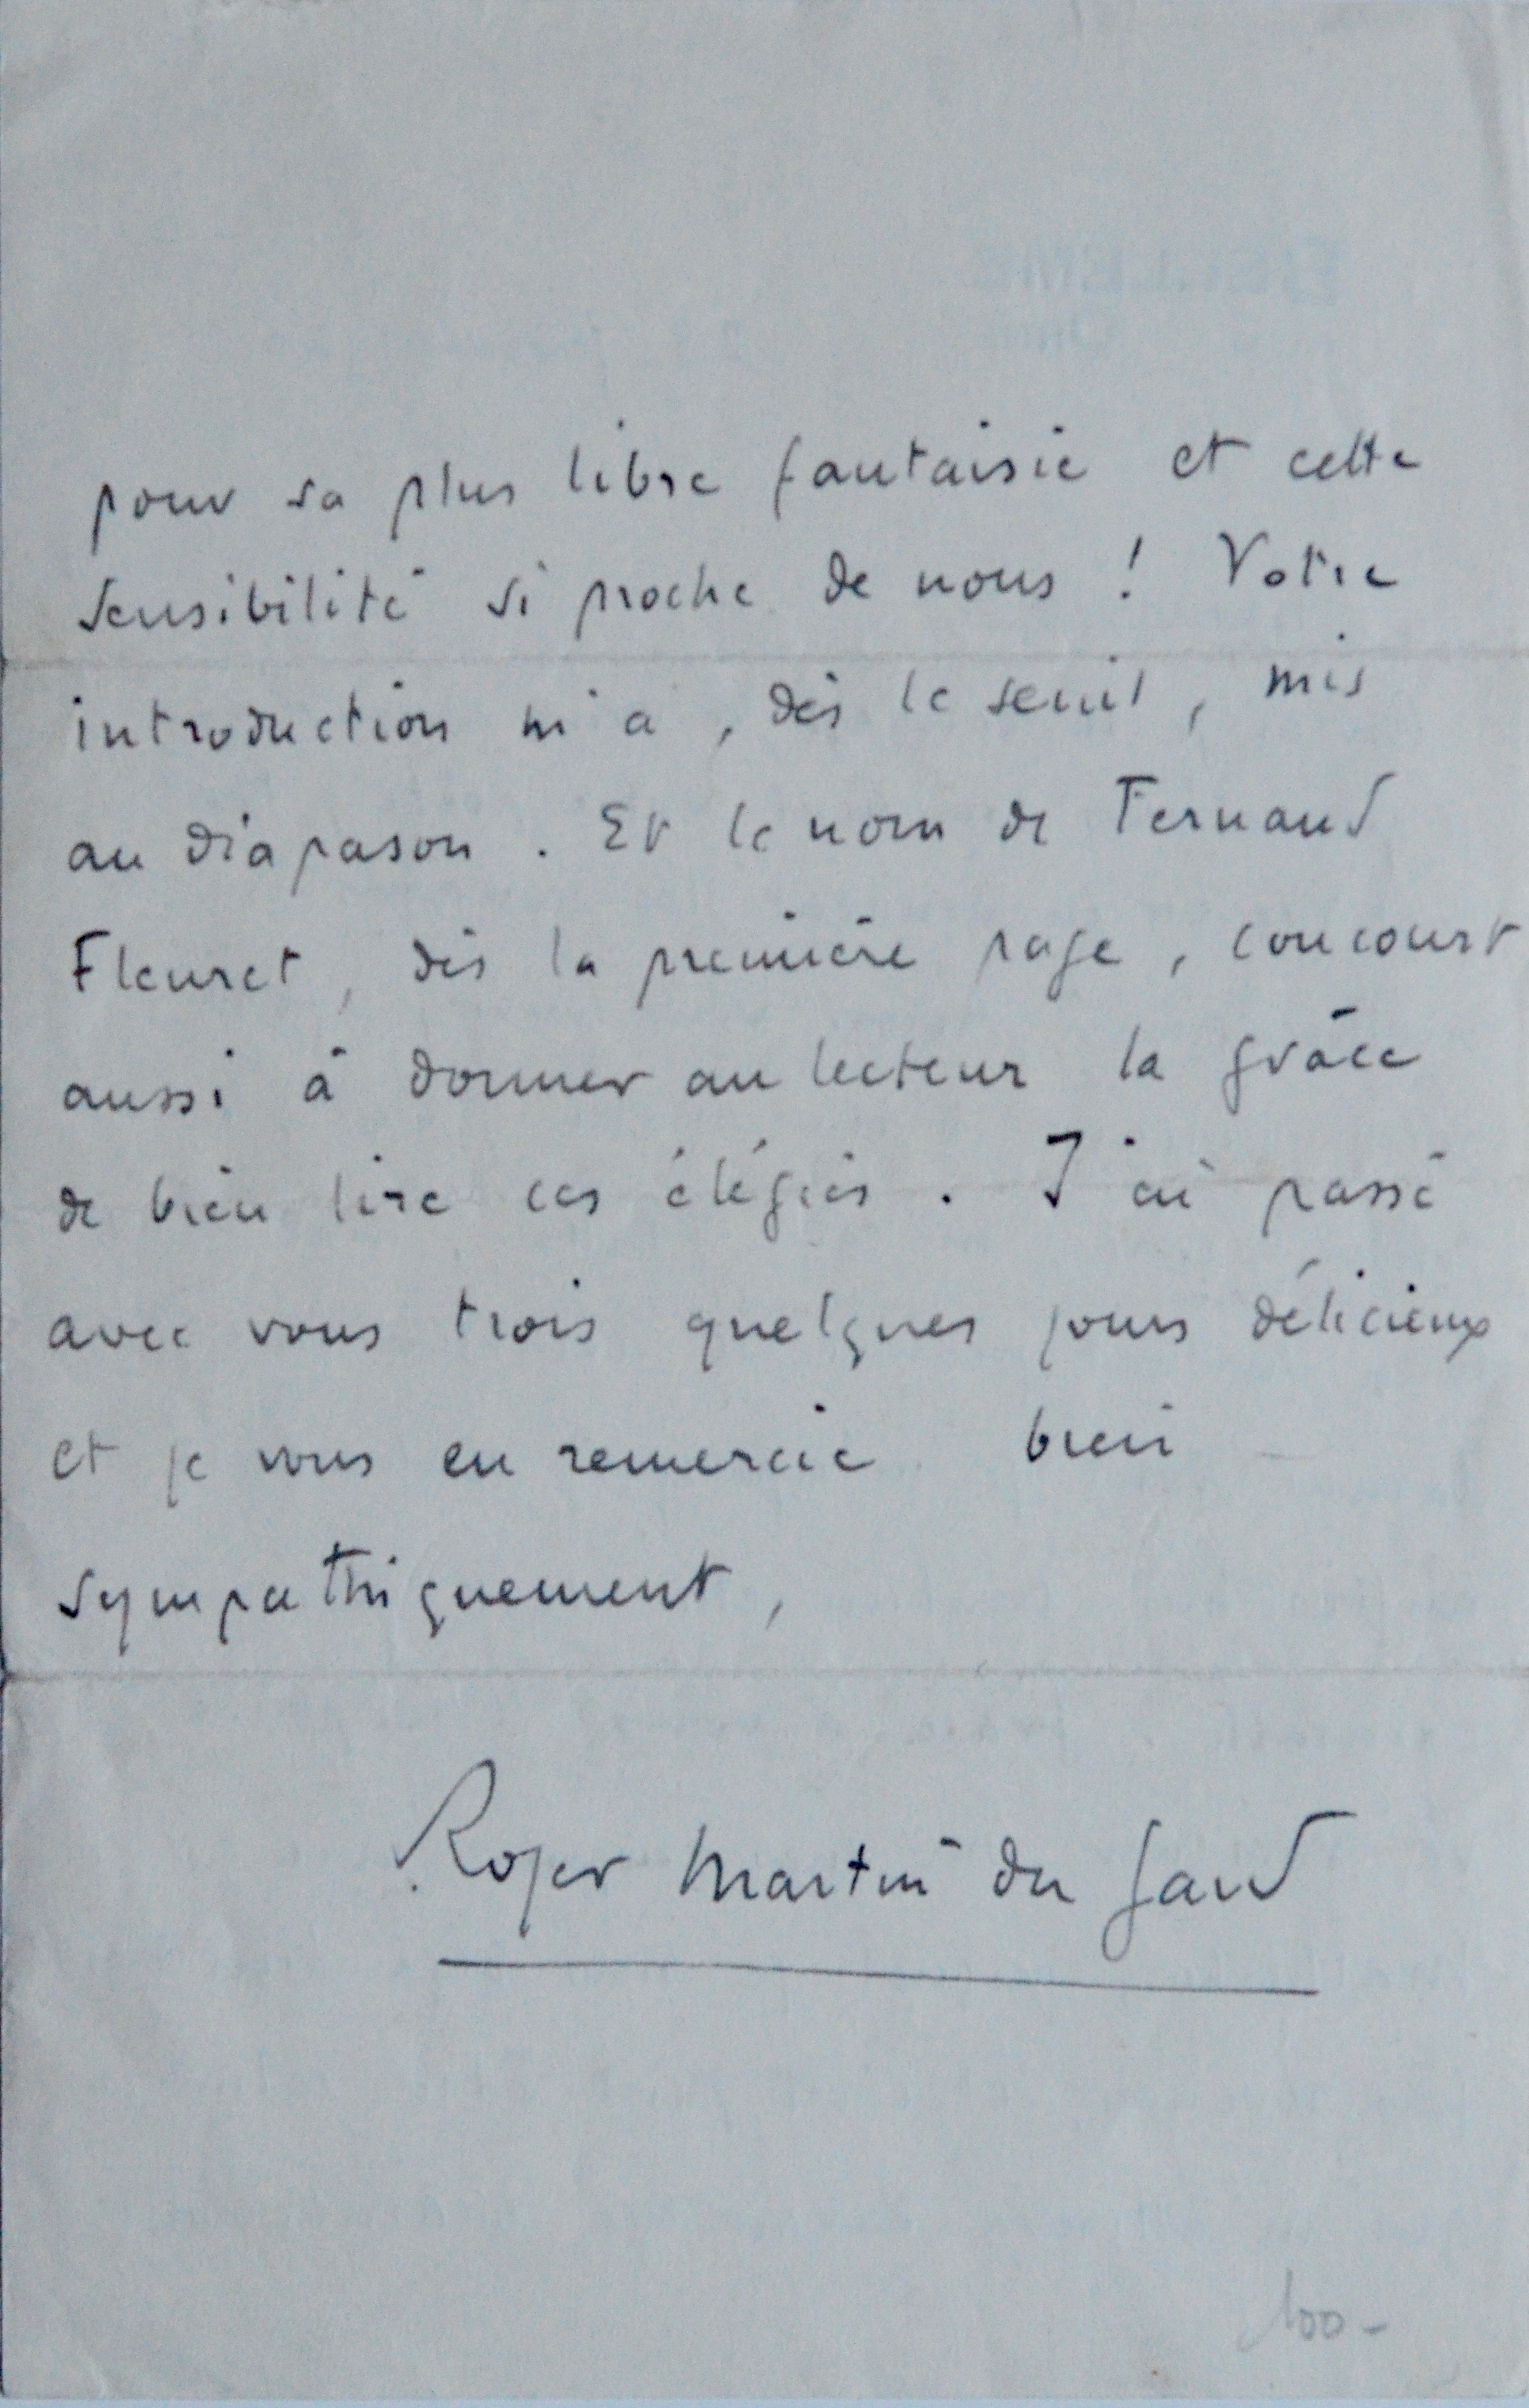 pour sa plus libre fantaisie et cette
sensibilité si proche de nous ! Votre
introduction m'a, dès le seuil, mis
au diapason. Et le nom de Fernand
Fleuret, dès la première page, concourt
aussi à donner au lecteur la grâce
de bien lire ces élégies. J'ai passé
avec vous trois quelques jours délicieux
et je vous en remercie bien
sympathiquement,
Roger Martin du Gard
100-